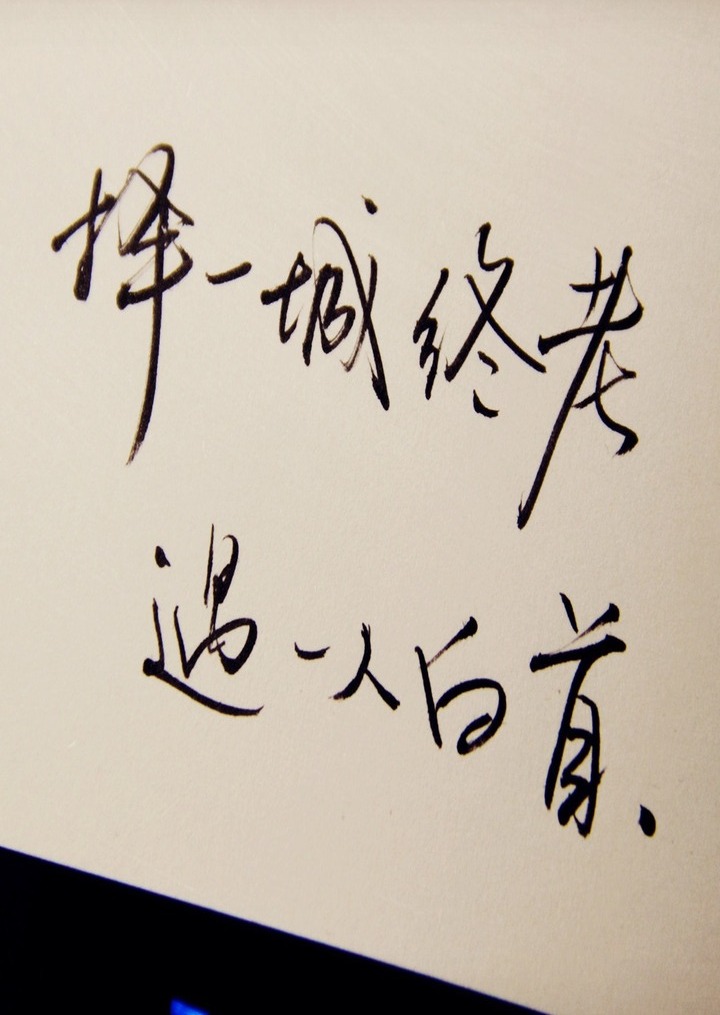 择一城终老
遇一人白首、